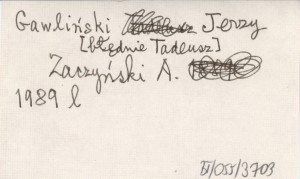 Gawliński Tadeusz Jerzy
[błędnie Tadeusz]
Zaczyński A.
1989 l
IV/OSS/3703